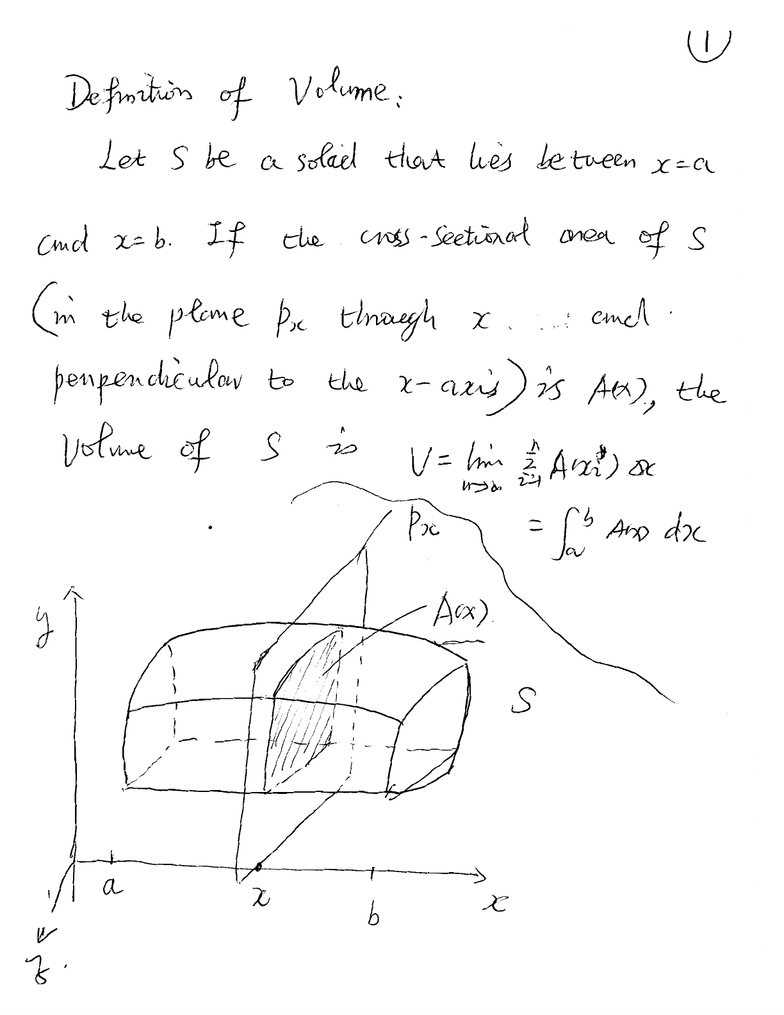 1
Definition of Volume:
Let S be a solid that lies between x=a
and x=b. If the cross-sectional area of S
(in the plane Px through x ... and
perpendicular to the x-axis) is A(x), the
Volume of S is V = lim n→∞ Σ i=1 n A(xi*) Δx
= ∫ a b A(x) dx
Px
A(x)
y
S
a
x
b
x
z